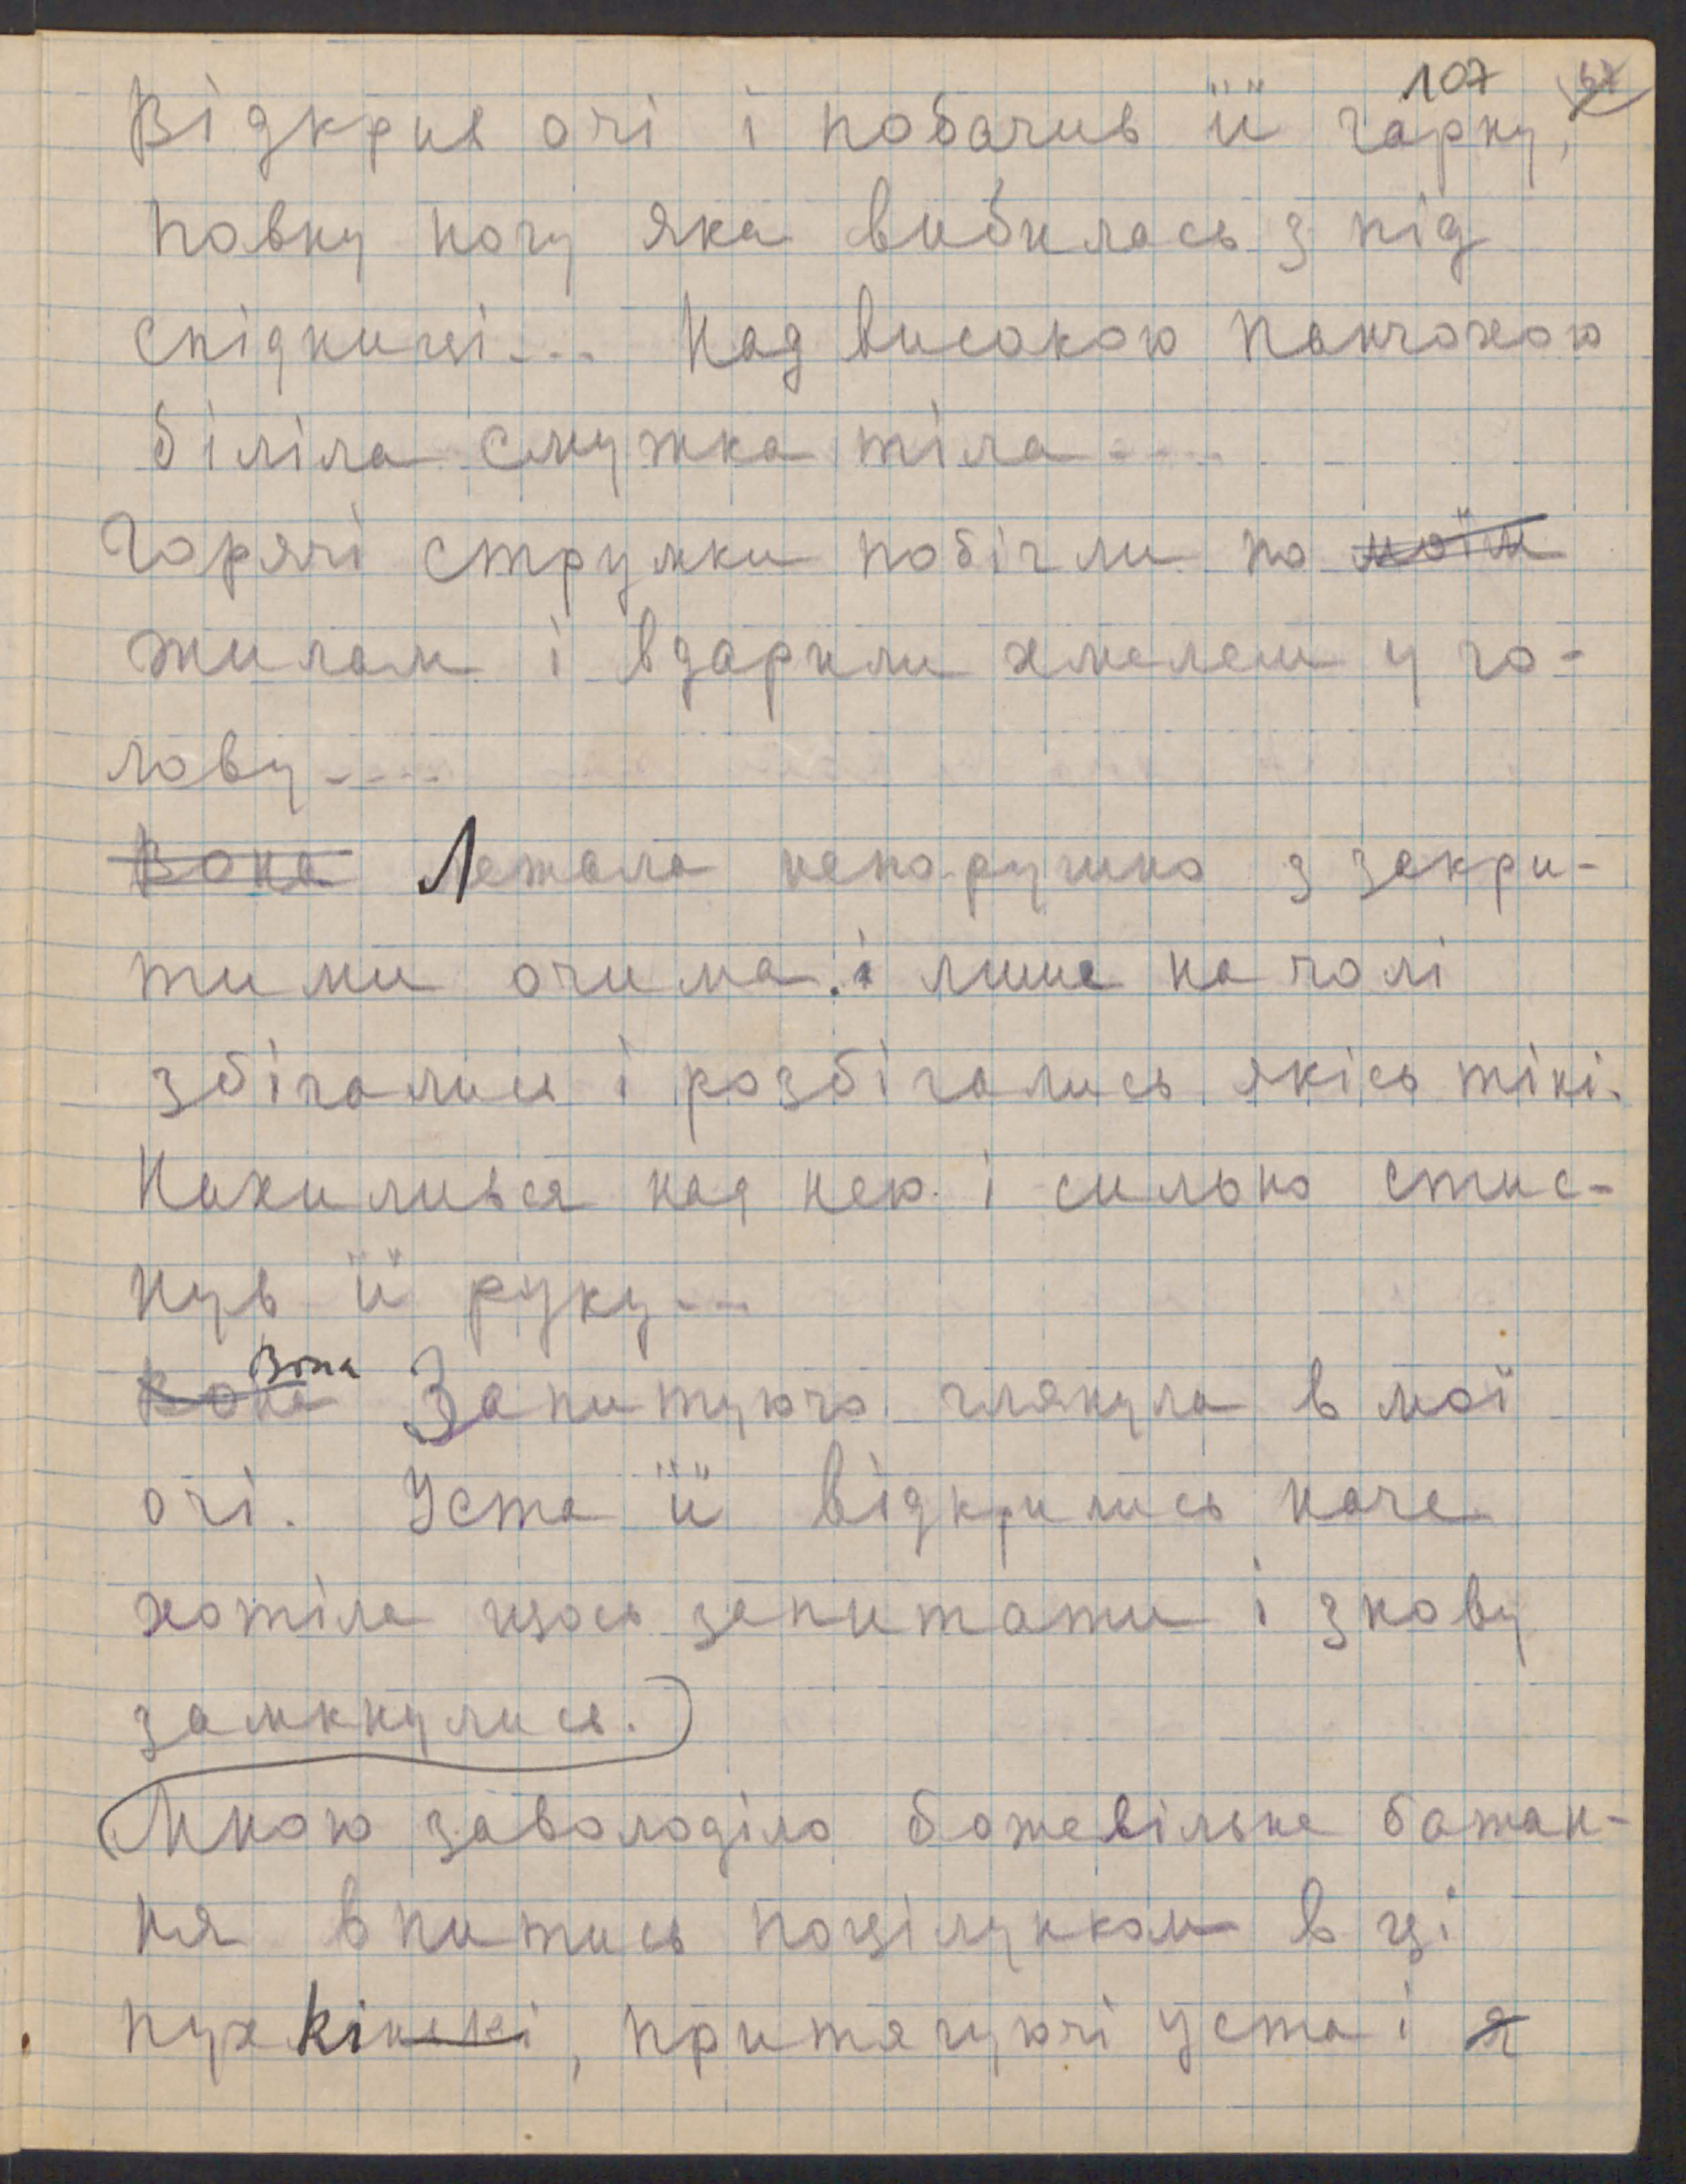 107
Відкрив очі і побачив її гарну,
повну ногу яка вибилась з під
спідниці... Над високою панчохою
біліла смужка тіла....
Гарячі струмки побігли по моїм
жилам і вдарили хмелем у го-
лову....
Вона Лежала непорушно з закри-
тими очима. і лише на чолі
збігались і розбігались якісь тіні.
Нахилився над нею і сильно стис-
нув її руку...
Вона Вона Запитуючо глянула в мої
очі. Уста її відкрились наче
хотіла щось запитати і знову
замкнулись.
Мною заволоділо божевільне бажан-
ня впитись поцілунком в ці
пухкінькі, притягуючі уста і я